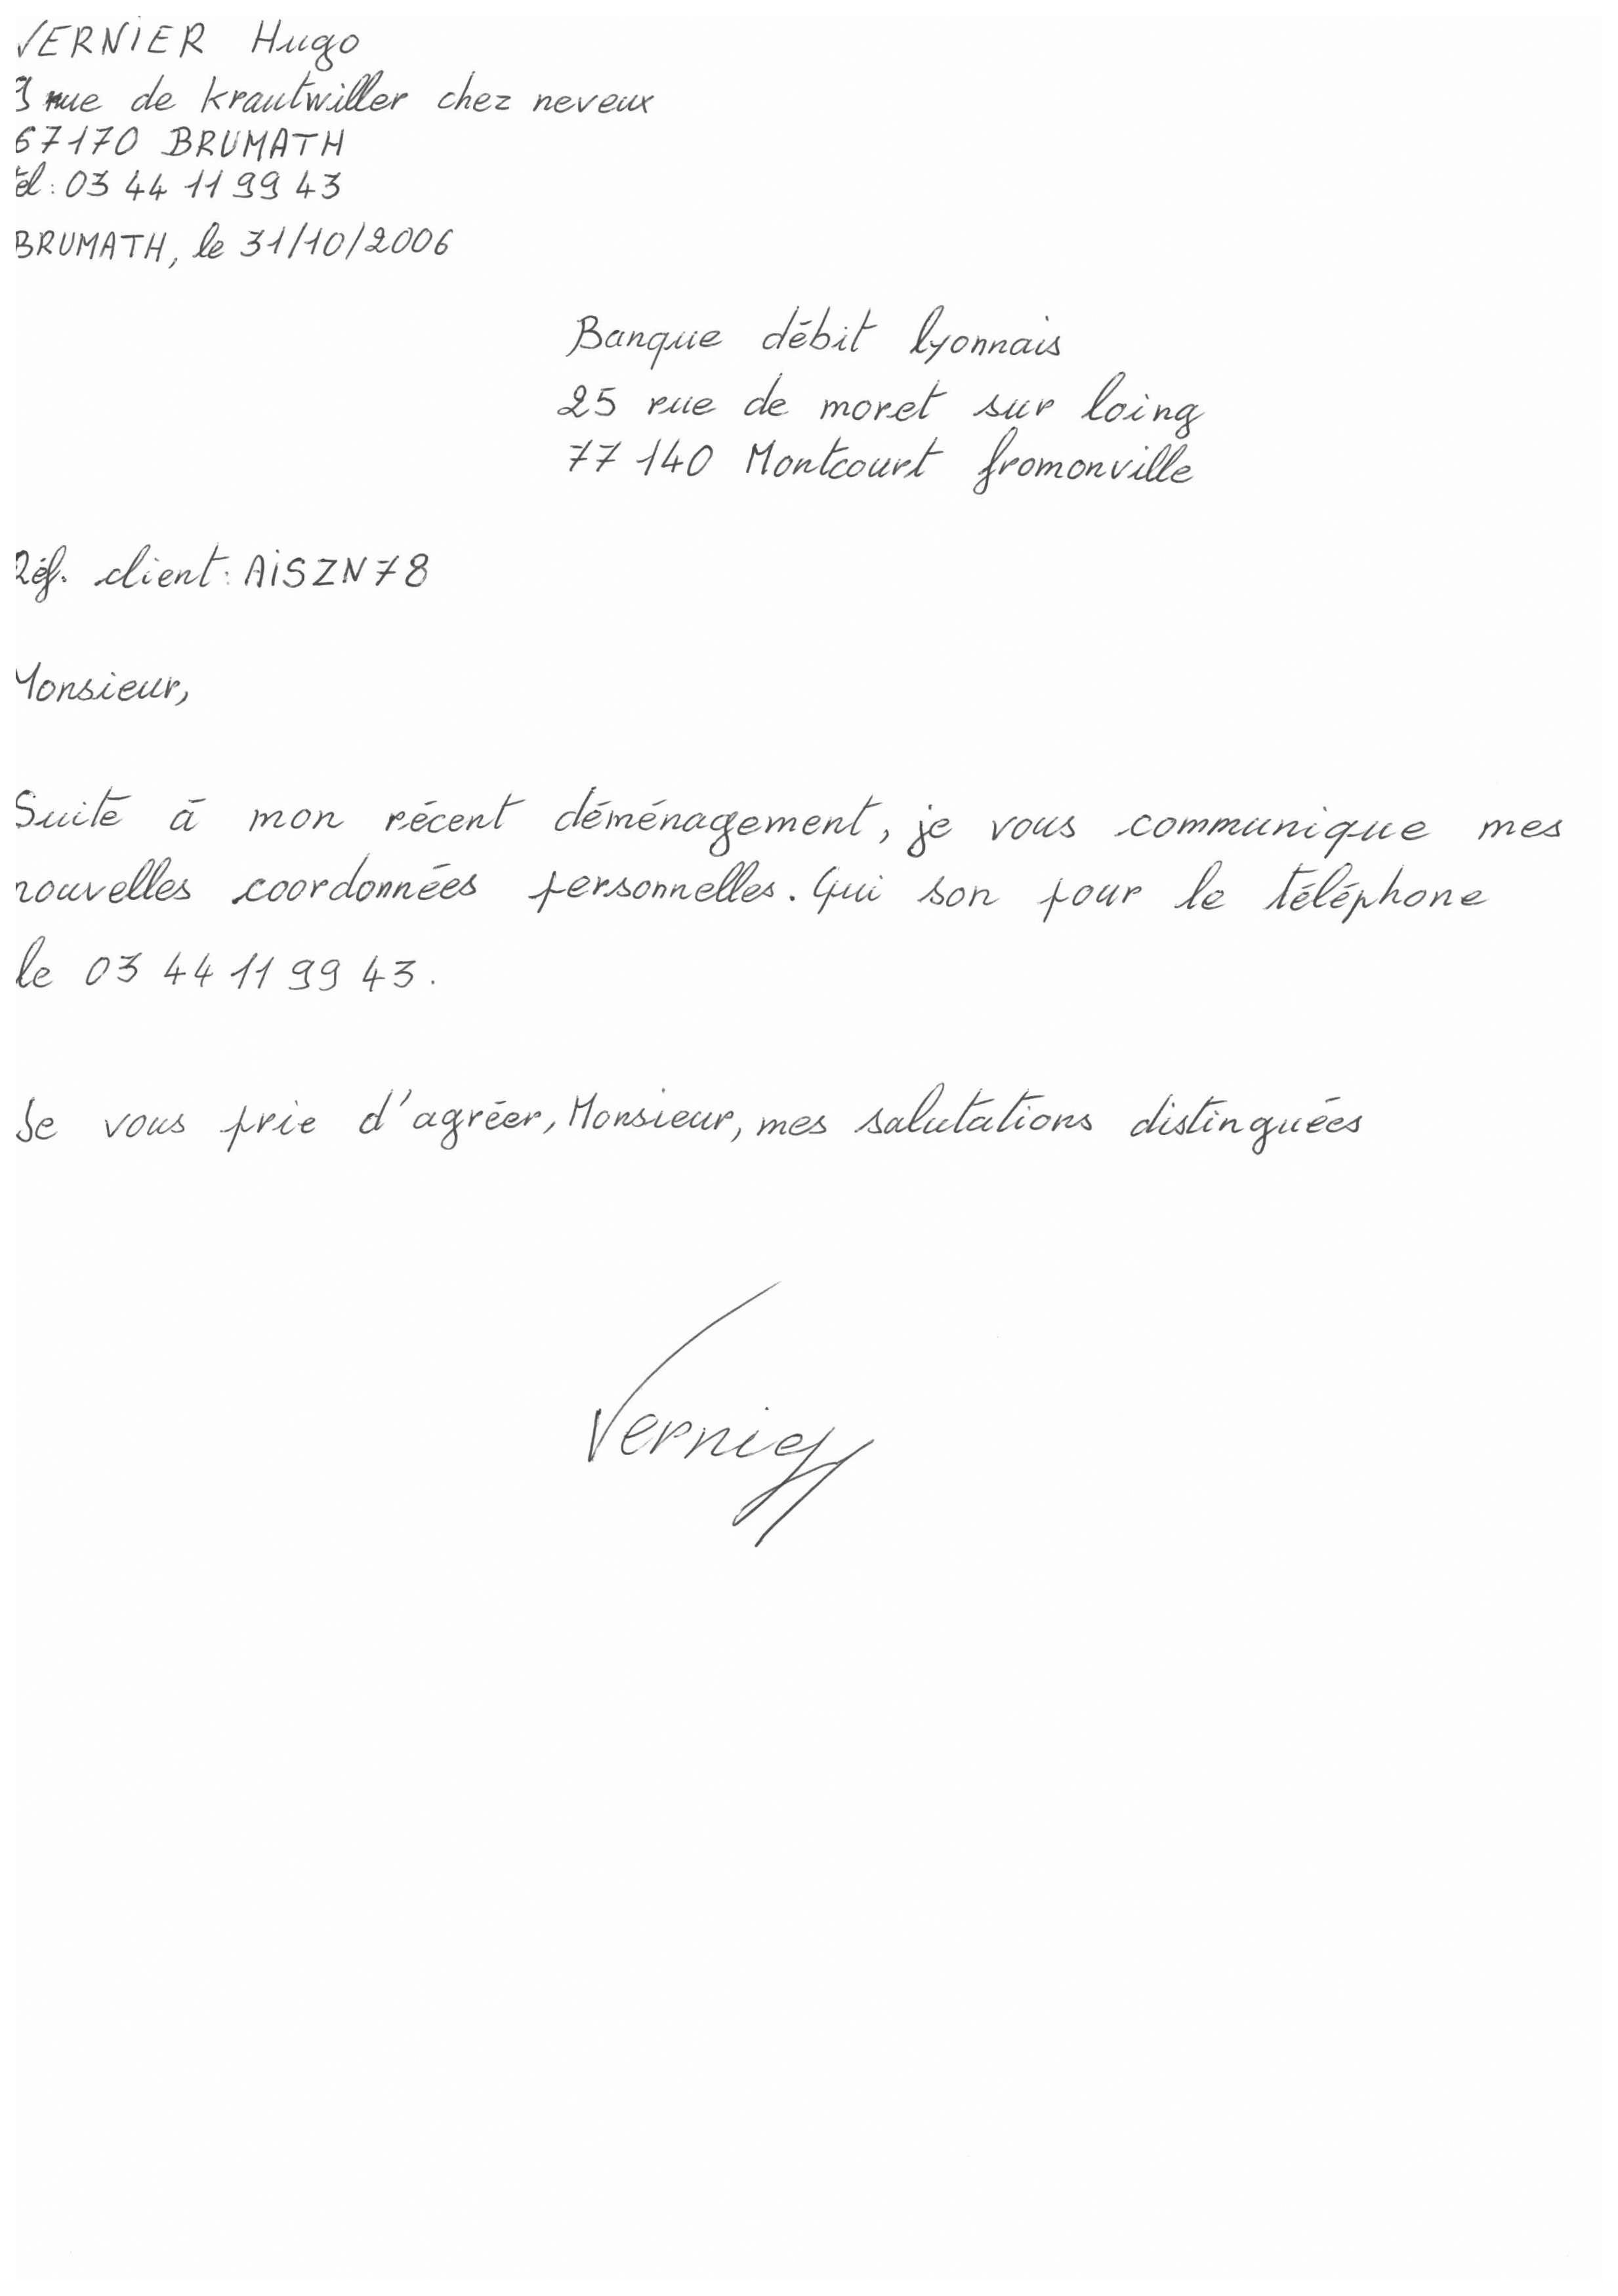 VERNIER Hugo
rue de krautwiller chez neveux
67170 BRUMATH
tél : 03 44 11 99 43
BRUMATH, le 31/10/2006
Banque débit lyonnais
25 rue de moret sur loing
77 140 Montcourt fromonville
Réf. client : AiSZN78
Monsieur,
Suite à mon récent déménagement, je vous communique mes
nouvelles coordonnées personnelles. Qui son pour le téléphone
le 03 44 11 99 43.
Je vous prie d'agréer, Monsieur, mes salutations distinguées
Vernier